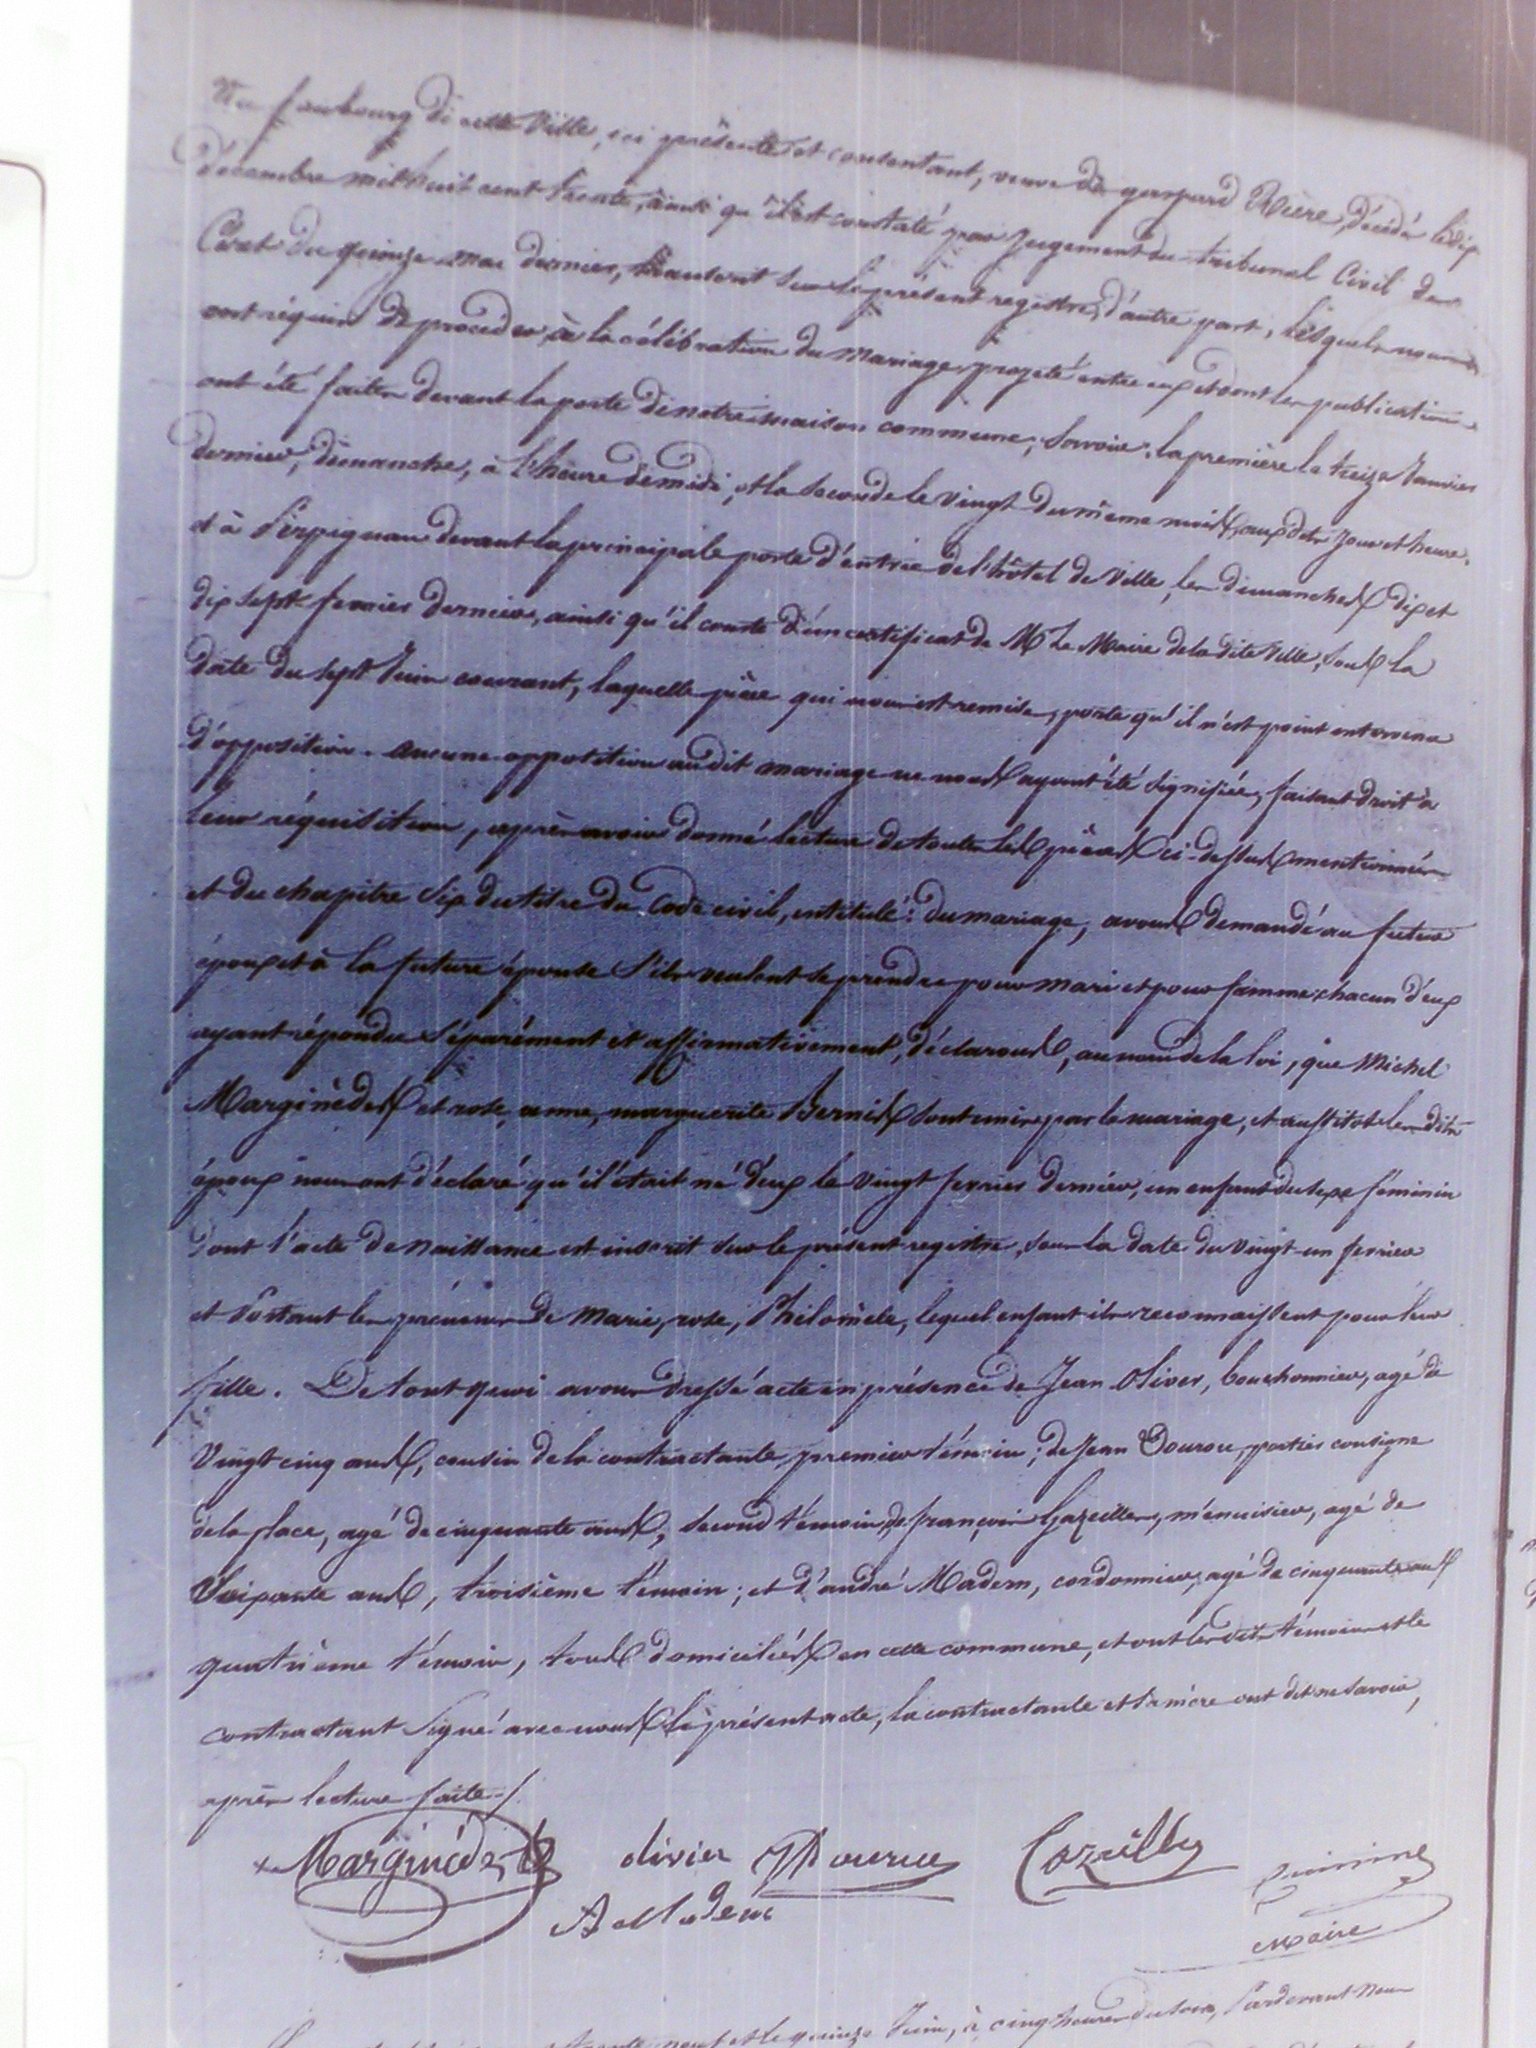 du faubourg de cette Ville, ici présente et consentant, veuve de gaspard Rière, décédé le dix
décembre mil huit cent trente, ainsi qu'il est constaté par Jugement du tribunal Civil de
Céret du quinze mai dernier, transcrit sur le présent registre, d'autre part, lesquels nous
ont réquis de procéder à la célébration du mariage projeté entre eux et dont les publications
ont été faites devant la porte de notre maison commune, Savoir: la première le treize Janvier
dernier, dimanche, à l'heure de midi, et la seconde le vingt du même mois, aux dits jour et heure.
et à Perpignan devant la principale porte d'entrée de l'hôtel de Ville, les dimanches dix et
dix sept fevrier dernier, ainsi qu'il conste d'un certificat de Mr Le Maire de la dite Ville, sous la
date du sept Juin courant, laquelle pièce qui nous est remise, porte qu'il n'est point intervenu
d'opposition. aucune opposition audit mariage ne nous ayant été signifiée, faisant droit à
leur réquisition, après avoir donné lecture de toutes les pièces ci-dessus mentionnées
et du chapitre Six du titre du Code civil, intitulé: du mariage, avons demandé au futur
époux et à la future épouse s'ils veulent se prendre pour mari et pour femme, chacun d'eux
ayant répondu séparément et affirmativement, déclarons, au nom de la loi, que Michel
Marginèdes et rose, anne, marguerite Bernis sont unis par le mariage, et aussitot les dits
époux nous ont déclaré qu'il était né d'eux le vingt fevrier dernier, un enfant du sexe féminin
dont l'acte de naissance est inscrit sur le présent registre, sous la date du vingt-un fevrier
et Portant les prénoms de Marie, rose, Philomèle, lequel enfant ils reconnaissent pour leur
fille. De tout quoi avons dressé acte en présence de Jean Oliver, bouchonnier, agé de
Vingt cinq ans, cousin de la contractante, premier témoin; de Jean Dourou, portier consigne
de la place, agé de cinquante ans, second témoin, de françois Gazeilles, ménuisier, agé de
Soixante ans, troisième témoin; et d'andré Madern, cordonnier, agé de cinquante ans
quatrième témoin, tous domiciliés en cette commune, et ont les dits témoins et le
contractant Signé avec nous le présent acte, la contractante et sa mère ont dit ne savoir,
après lecture faite./.
Marginédes olivier Cazeilles
A Madern
Maire
neuf et le quinze Juin, à cinq heures du soir, Pardevant Nous